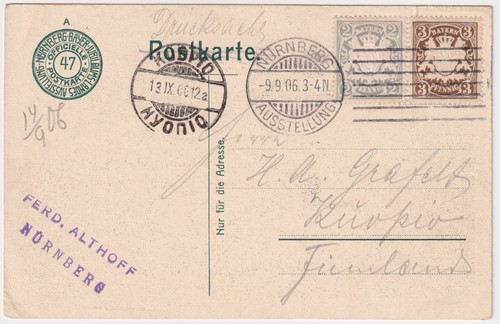 A
NÜRNBERG·BAYER·JUBILÄUMS-LANDES-AUSSTELLUNG
OFFICIELLE
47
POSTKARTE
Drucksache
Postkarte.
KUOPIO
13 IX 06 12a
NÜRNBERG
-9.9.06.3-4N.
AUSSTELLUNG
BAYERN
2 2
PFENNIG
BAYERN
3 3
PFENNIG
14/9 06
Herrn
H. A. Gråfelt
Kuopio
Finnland
Nur für die Adresse.
FERD. ALTHOFF
NÜRNBERG